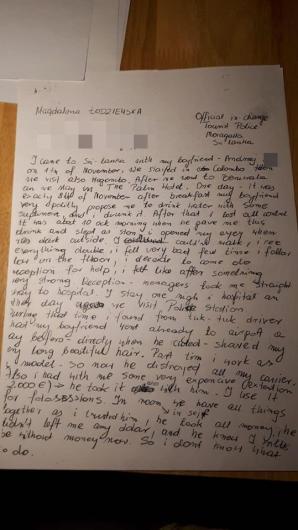 Magdalena ŁODZIEŃSKA
Official in-charge
Tourist Police
Moragalla
Sri Lanka
I came to Sri-Lanka with my boyfriend - Andrzey
on 4th of November, we stayed in Colombo then
we visit also Negombo. After we went to Beruwala
an we stay in The Palm Hotel. One day - it was
exactly of November - after breakfast my boyfriend
very politly propose me to drink water with some
supliment, and i drunk it. After that i lost all control
it was abot 10 ock morning when he gave me this
drink and i opened my eyes when
was dark outside. I could walk, i see
everything double, i fell very bad few time i follow
lost on the floor, i decide to come also
reception for help, i felt like after something
very strong. Reception - managers took me straight
away to hospital. I stay one nigh in hospital an
day we visit Police station
during that time i found from tuk-tuk driver
that my boyfriend went already to airpoft a
ay before - directly when he shaved my
my long beautiful hair. Part tim i work as
model. So now he destroyed all my carrier.
Also i had with me some very expensive
2,000 €) he took it with him. I use it
for In room we have all things
together, as i trusted him, he took all money, he
didn't left me any dolar, and he know I will
be without money now. So i dont know what
o do.